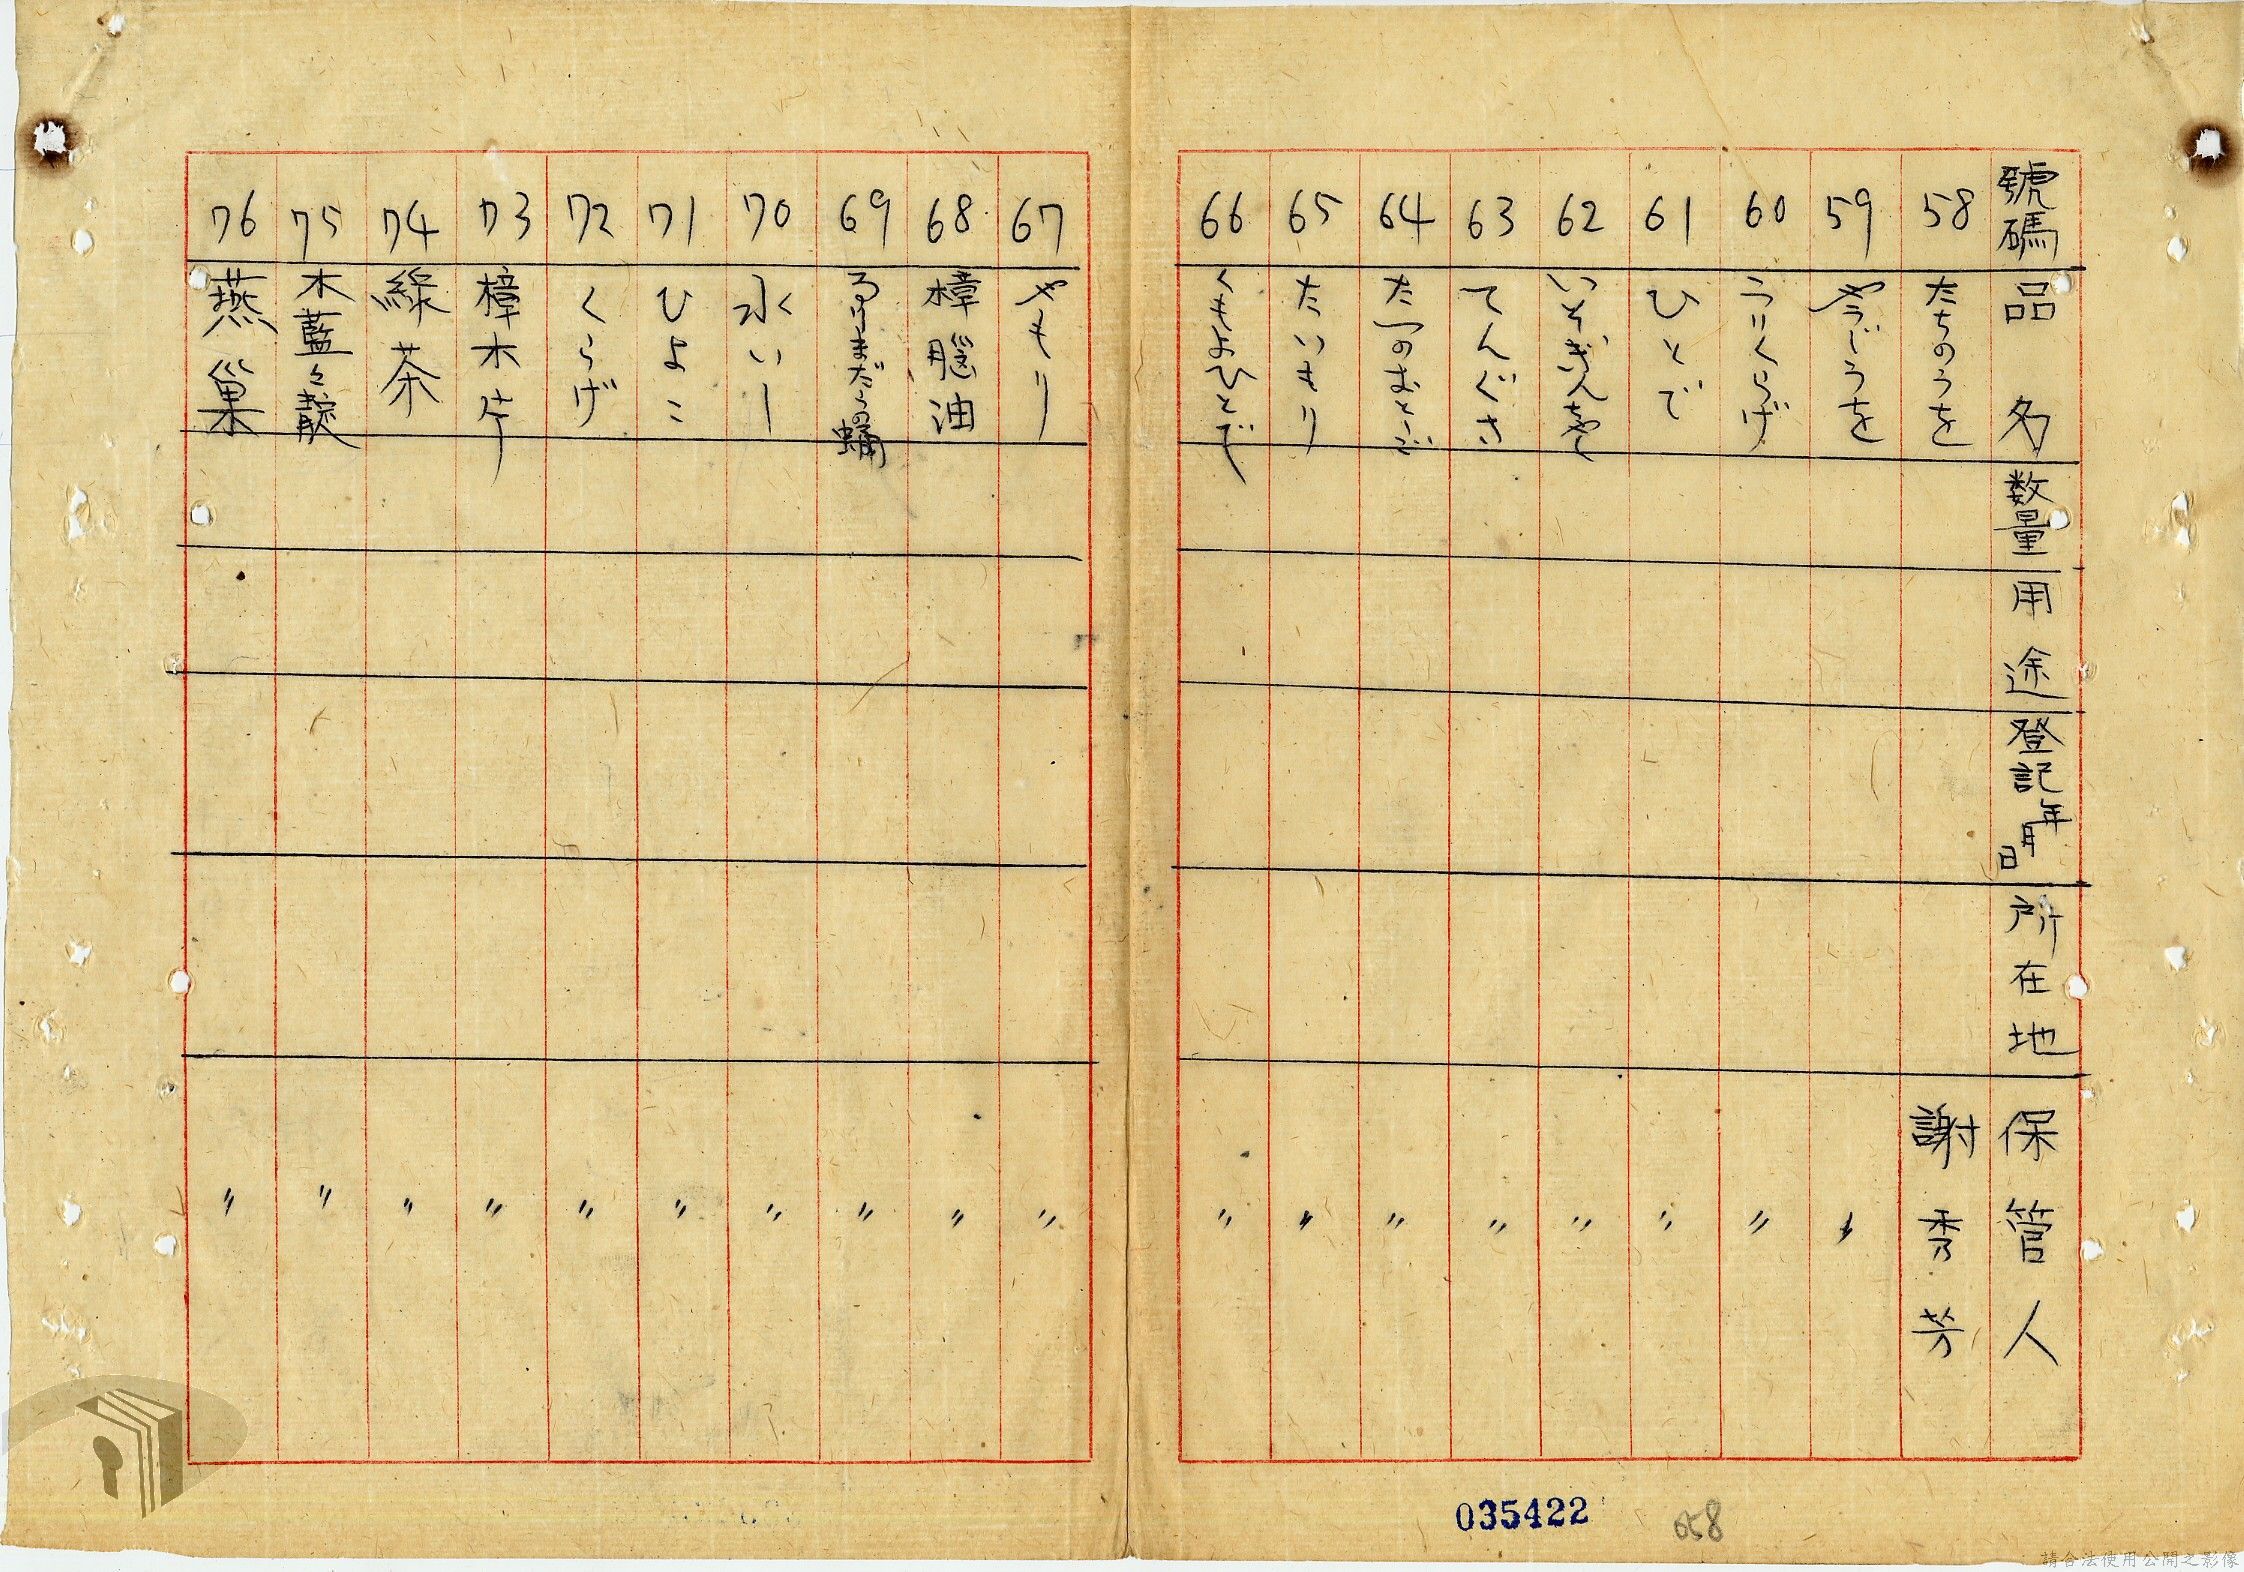 號碼 品名 数量 用途 登記年月日 所在地 保管人
58 たちのうを 謝秀芳
59 やうじうを 〃
60 うりくらげ 〃
61 ひとで 〃
62 いとぎんちやく 〃
63 てんぐさ 〃
64 たつのおとしご 〃
65 たいまい 〃
66 くもよひとで 〃
67 やもり 〃
68 樟腦油 〃
69 るりまだらの蛹 〃
70 水い 〃
71 ひよこ 〃
72 くらげ 〃
73 樟木片 〃
74 綠茶 〃
75 木藍々靛 〃
76 燕巢 〃
035422
058
請合法使用公開之影像